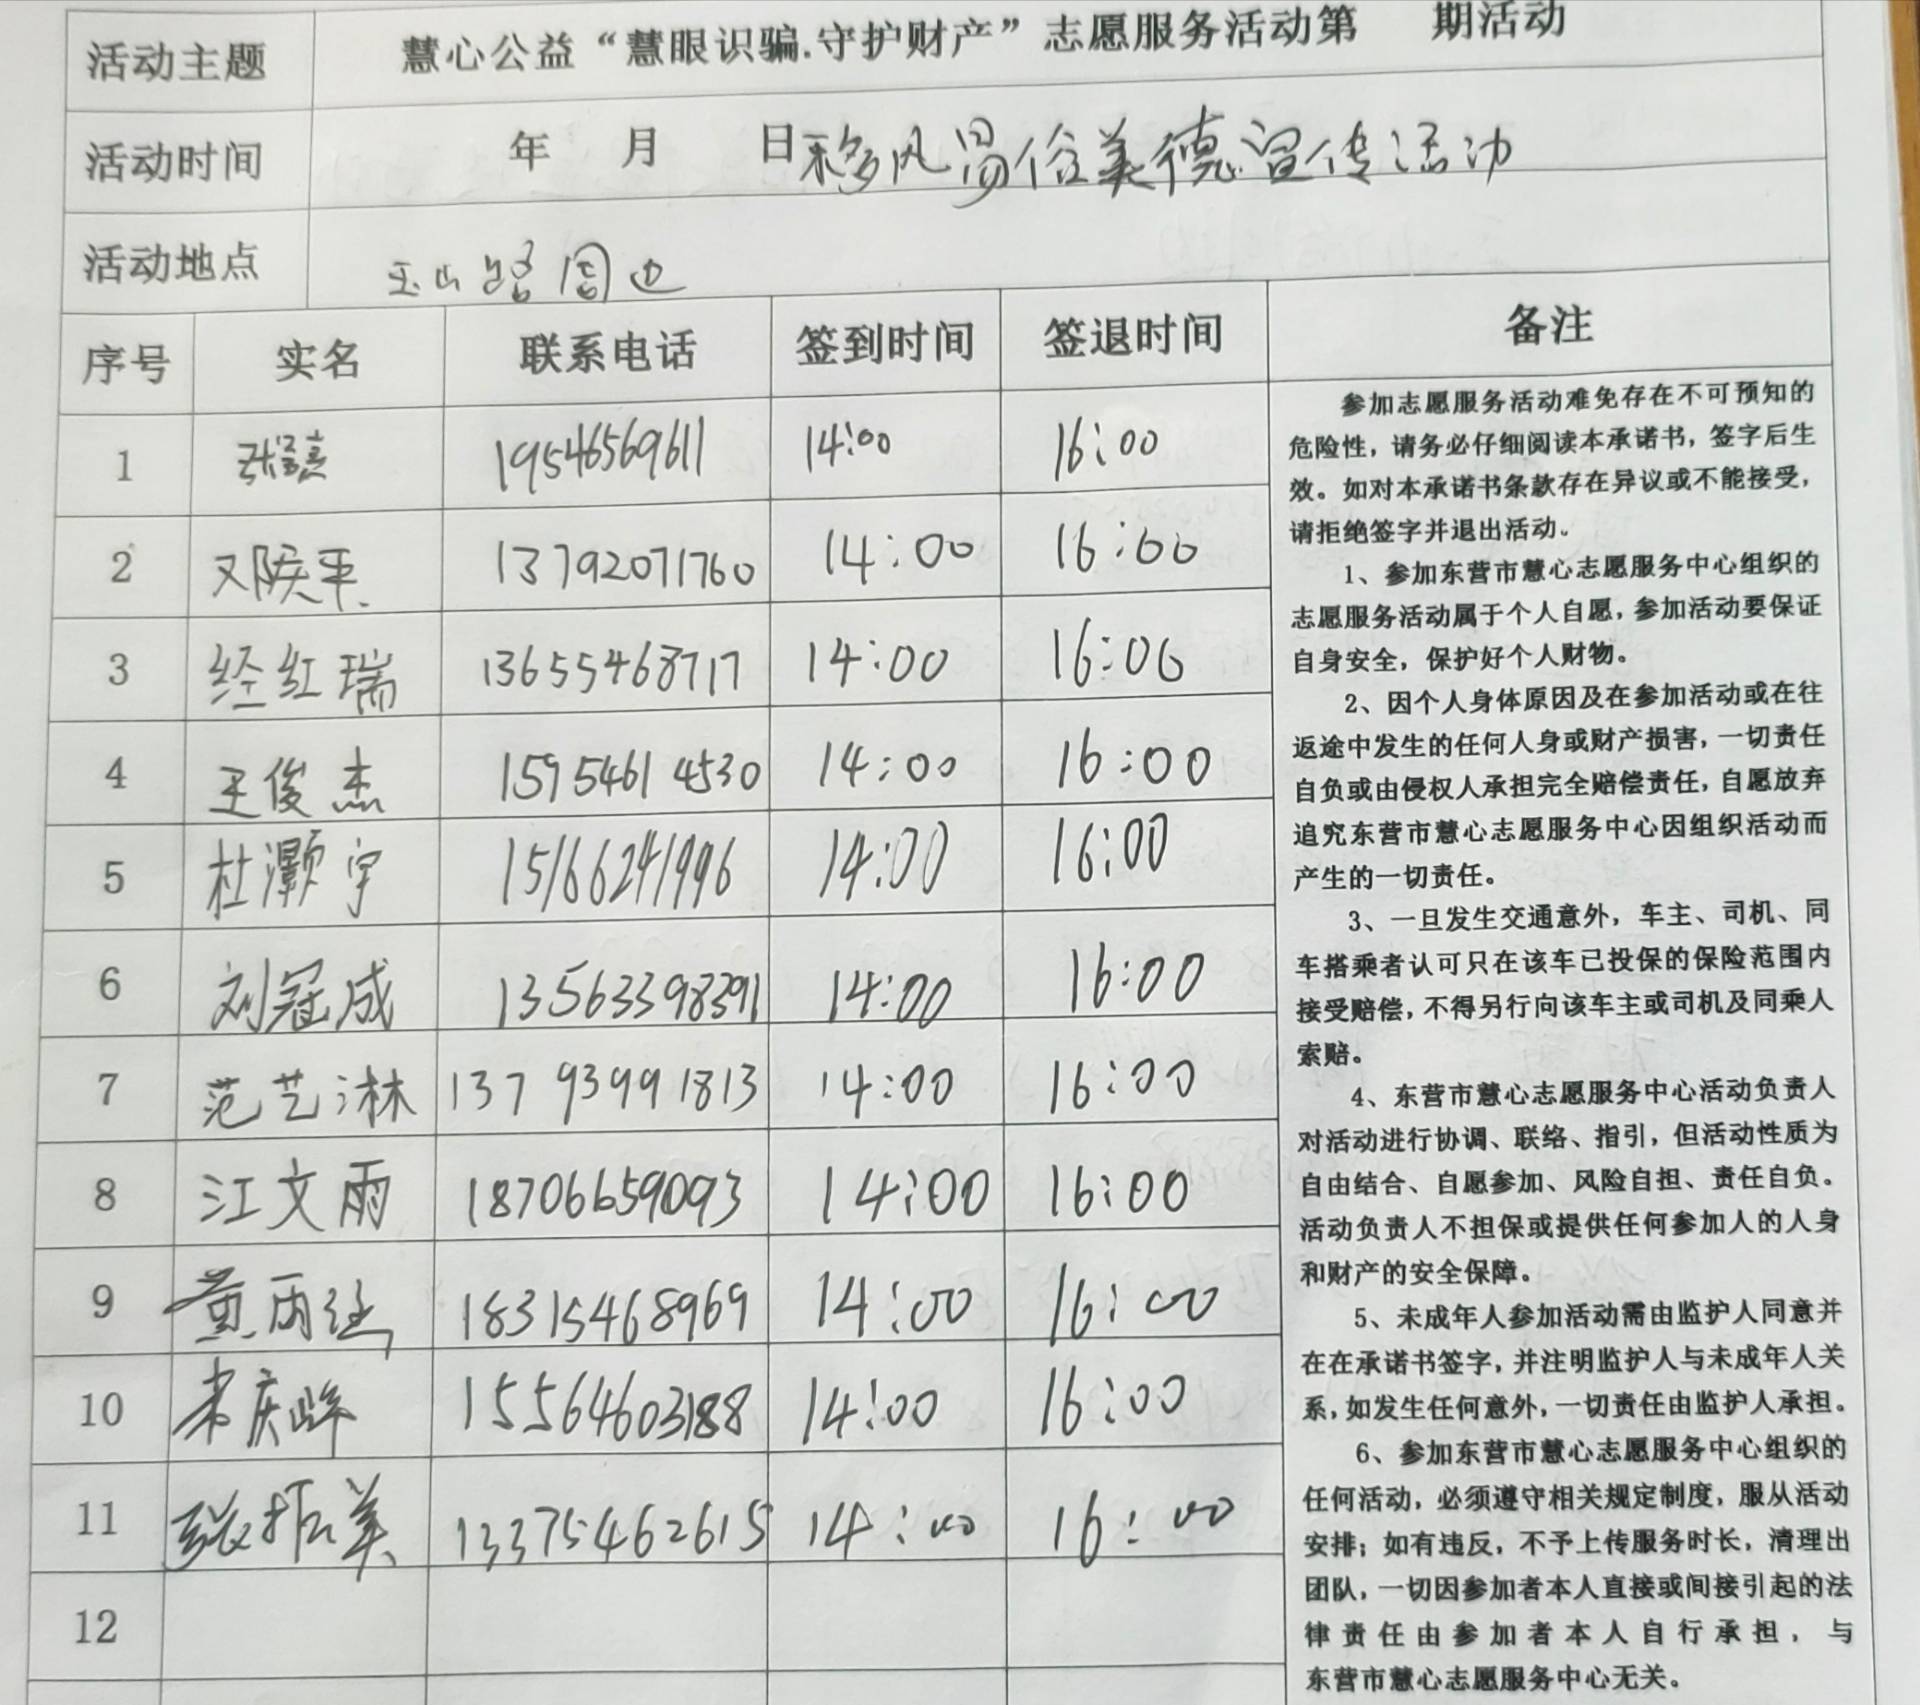 活动主题 慧心公益“慧眼识骗.守护财产”志愿服务活动第 期活动
活动时间 年 月 日 移风易俗美德宣传活动
活动地点 玉山路周边
序号 实名 联系电话 签到时间 签退时间 备注
1 19546569611 14:00 16:00
2 13792071760 14:00 16:00
3 经红瑞 13655468717 14:00 16:00
4 王俊杰 15954614530 14:00 16:00
5 杜灏宇 15166241996 14:00 16:00
6 刘冠成 13563398391 14:00 16:00
7 范艺淋 13793991813 14:00 16:00
8 江文雨 18706659093 14:00 16:00
9 黄雨 18315468969 14:00 16:00
10 宋庆峰 15564603188 14:00 16:00
11 张振美 13375462615 14:00 16:00
12
参加志愿服务活动难免存在不可预知的
危险性，请务必仔细阅读本承诺书，签字后生
效。如对本承诺书条款存在异议或不能接受，
请拒绝签字并退出活动。
1、参加东营市慧心志愿服务中心组织的
志愿服务活动属于个人自愿，参加活动要保证
自身安全，保护好个人财物。
2、因个人身体原因及在参加活动或在往
返途中发生的任何人身或财产损害，一切责任
自负或由侵权人承担完全赔偿责任，自愿放弃
追究东营市慧心志愿服务中心因组织活动而
产生的一切责任。
3、一旦发生交通意外，车主、司机、同
车搭乘者认可只在该车已投保的保险范围内
接受赔偿，不得另行向该车主或司机及同乘人
索赔。
4、东营市慧心志愿服务中心活动负责人
对活动进行协调、联络、指引，但活动性质为
自由结合、自愿参加、风险自担、责任自负。
活动负责人不担保或提供任何参加人的人身
和财产的安全保障。
5、未成年人参加活动需由监护人同意并
在在承诺书签字，并注明监护人与未成年人关
系，如发生任何意外，一切责任由监护人承担。
6、参加东营市慧心志愿服务中心组织的
任何活动，必须遵守相关规定制度，服从活动
安排；如有违反，不予上传服务时长，清理出
团队，一切因参加者本人直接或间接引起的法
律责任由参加者本人自行承担，与
东营市慧心志愿服务中心无关。